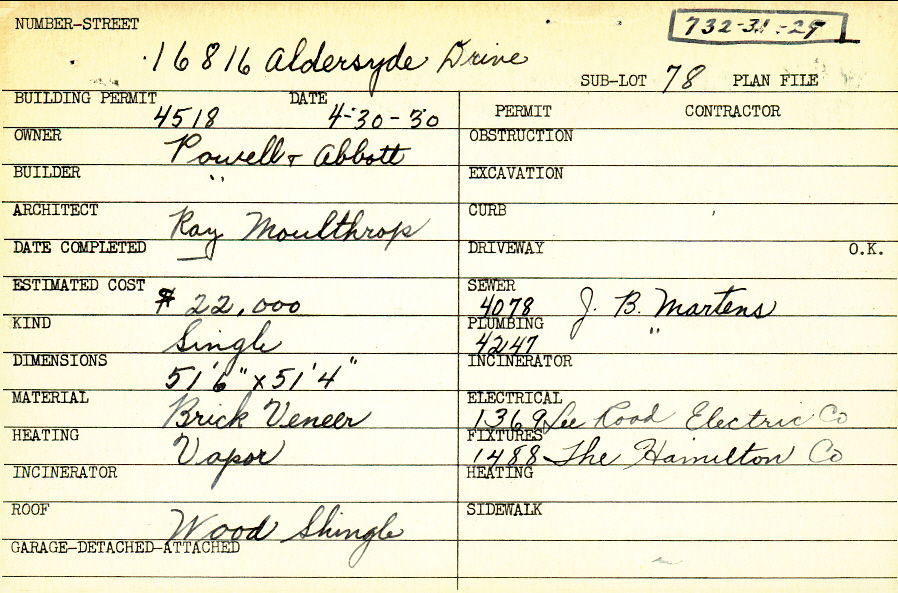 NUMBER-STREET
732-31-25
16816 Aldersyde Drive
SUB-LOT 78 PLAN FILE
BUILDING PERMIT 4518 DATE 4-30-30
OWNER Powell & Abbott
BUILDER "
ARCHITECT Ray Moulthrop
DATE COMPLETED —
ESTIMATED COST $ 22,000
KIND Single
DIMENSIONS 51'6" x 51'4"
MATERIAL Brick Veneer
HEATING Vapor
INCINERATOR
ROOF Wood Shingle
GARAGE-DETACHED-ATTACHED
PERMIT CONTRACTOR
OBSTRUCTION
EXCAVATION
CURB
DRIVEWAY O.K.
SEWER 4078 J. B. Martens
PLUMBING 4247 "
INCINERATOR
ELECTRICAL 1369 Lee Road Electric Co
FIXTURES 1488 The Hamilton Co
HEATING
SIDEWALK